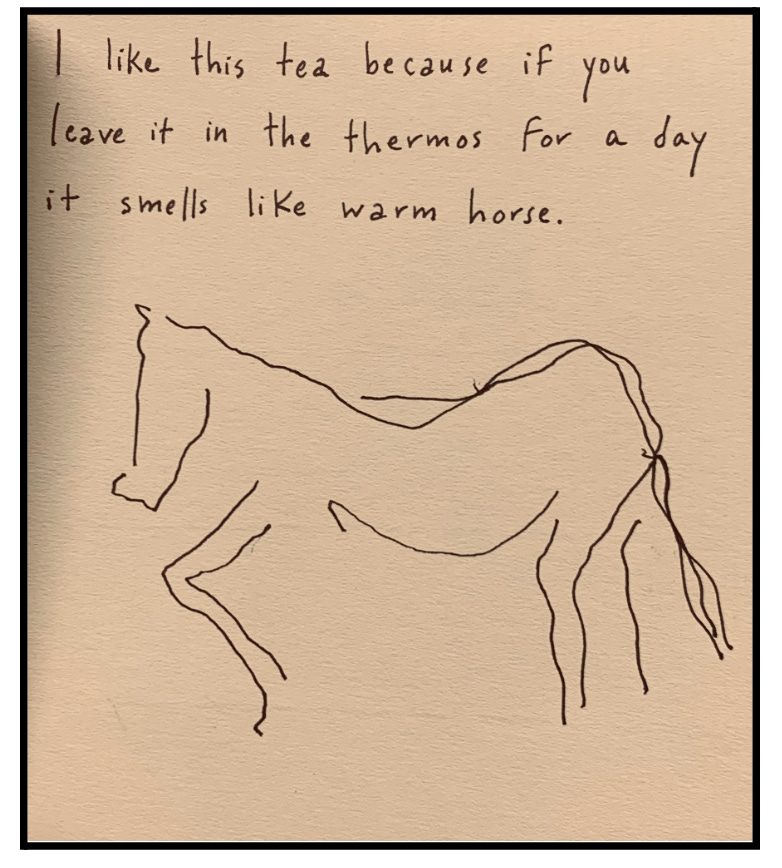 I like this tea because if you
leave it in the thermos for a day
it smells like warm horse.